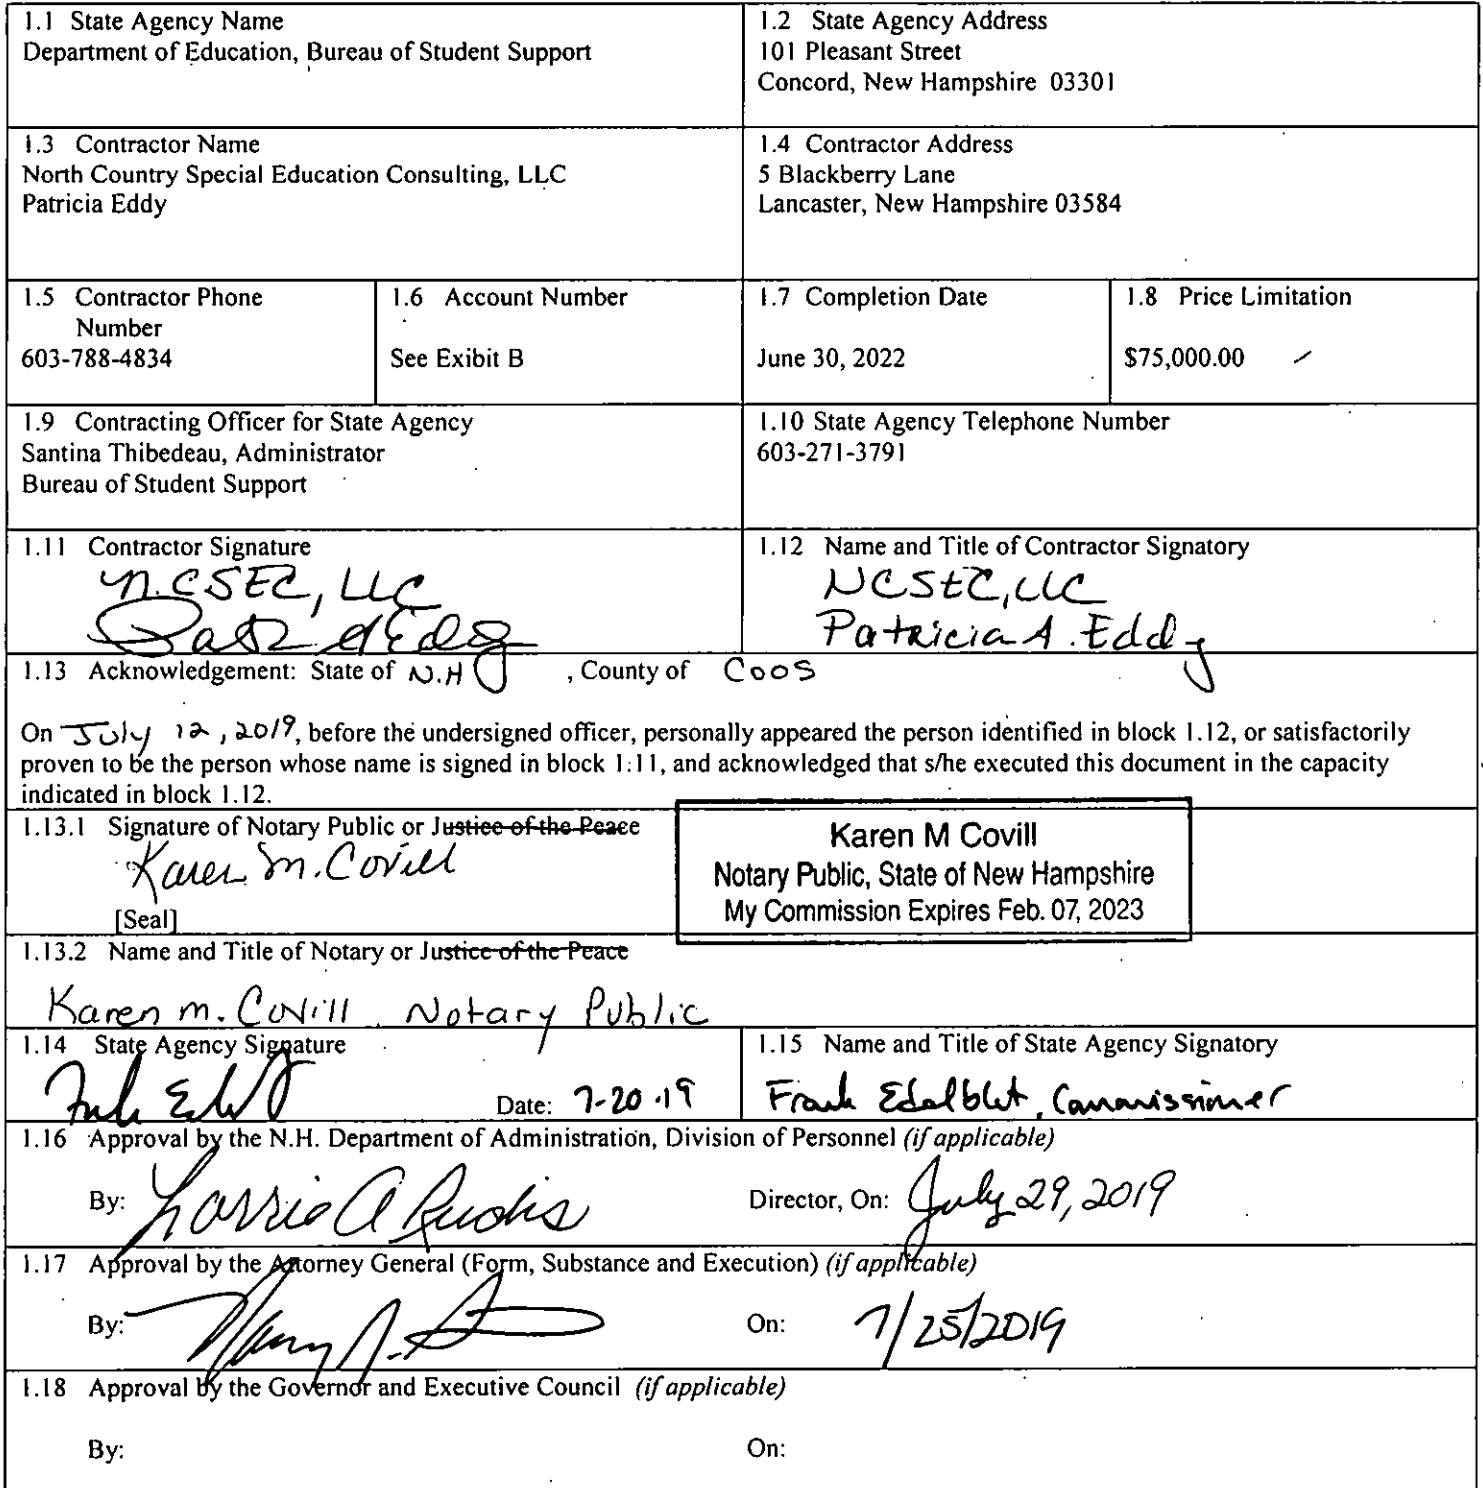 1.1 State Agency Name
Department of Education, Bureau of Student Support
1.2 State Agency Address
101 Pleasant Street
Concord, New Hampshire 03301
1.3 Contractor Name
North Country Special Education Consulting, LLC
Patricia Eddy
1.4 Contractor Address
5 Blackberry Lane
Lancaster, New Hampshire 03584
1.5 Contractor Phone
Number
603-788-4834
1.6 Account Number
See Exibit B
1.7 Completion Date
June 30, 2022
1.8 Price Limitation
$75,000.00
1.9 Contracting Officer for State Agency
Santina Thibedeau, Administrator
Bureau of Student Support
1.10 State Agency Telephone Number
603-271-3791
1.11 Contractor Signature
N.CSEC, LLC
1.12 Name and Title of Contractor Signatory
NCSEC, LLC
Patricia A. Eddy
1.13 Acknowledgement: State of N.H , County of COOS
On July 12, 2019, before the undersigned officer, personally appeared the person identified in block 1.12, or satisfactorily
proven to be the person whose name is signed in block 1:11, and acknowledged that s/he executed this document in the capacity
indicated in block 1.12.
1.13.1 Signature of Notary Public or Justice of the Peace
Karen M. Covill
[Seal]
Karen M Covill
Notary Public, State of New Hampshire
My Commission Expires Feb. 07, 2023
1.13.2 Name and Title of Notary or Justice of the Peace
Karen M. Covill Notary Public
1.14 State Agency Signature
Date: 7-20-19
1.15 Name and Title of State Agency Signatory
Frank Edelblut, Commissioner
1.16 Approval by the N.H. Department of Administration, Division of Personnel (if applicable)
By: Lorrie A Rudis
Director, On: July 29, 2019
1.17 Approval by the Attorney General (Form, Substance and Execution) (if applicable)
By:
On: 7/25/2019
1.18 Approval by the Governor and Executive Council (if applicable)
By:
On: